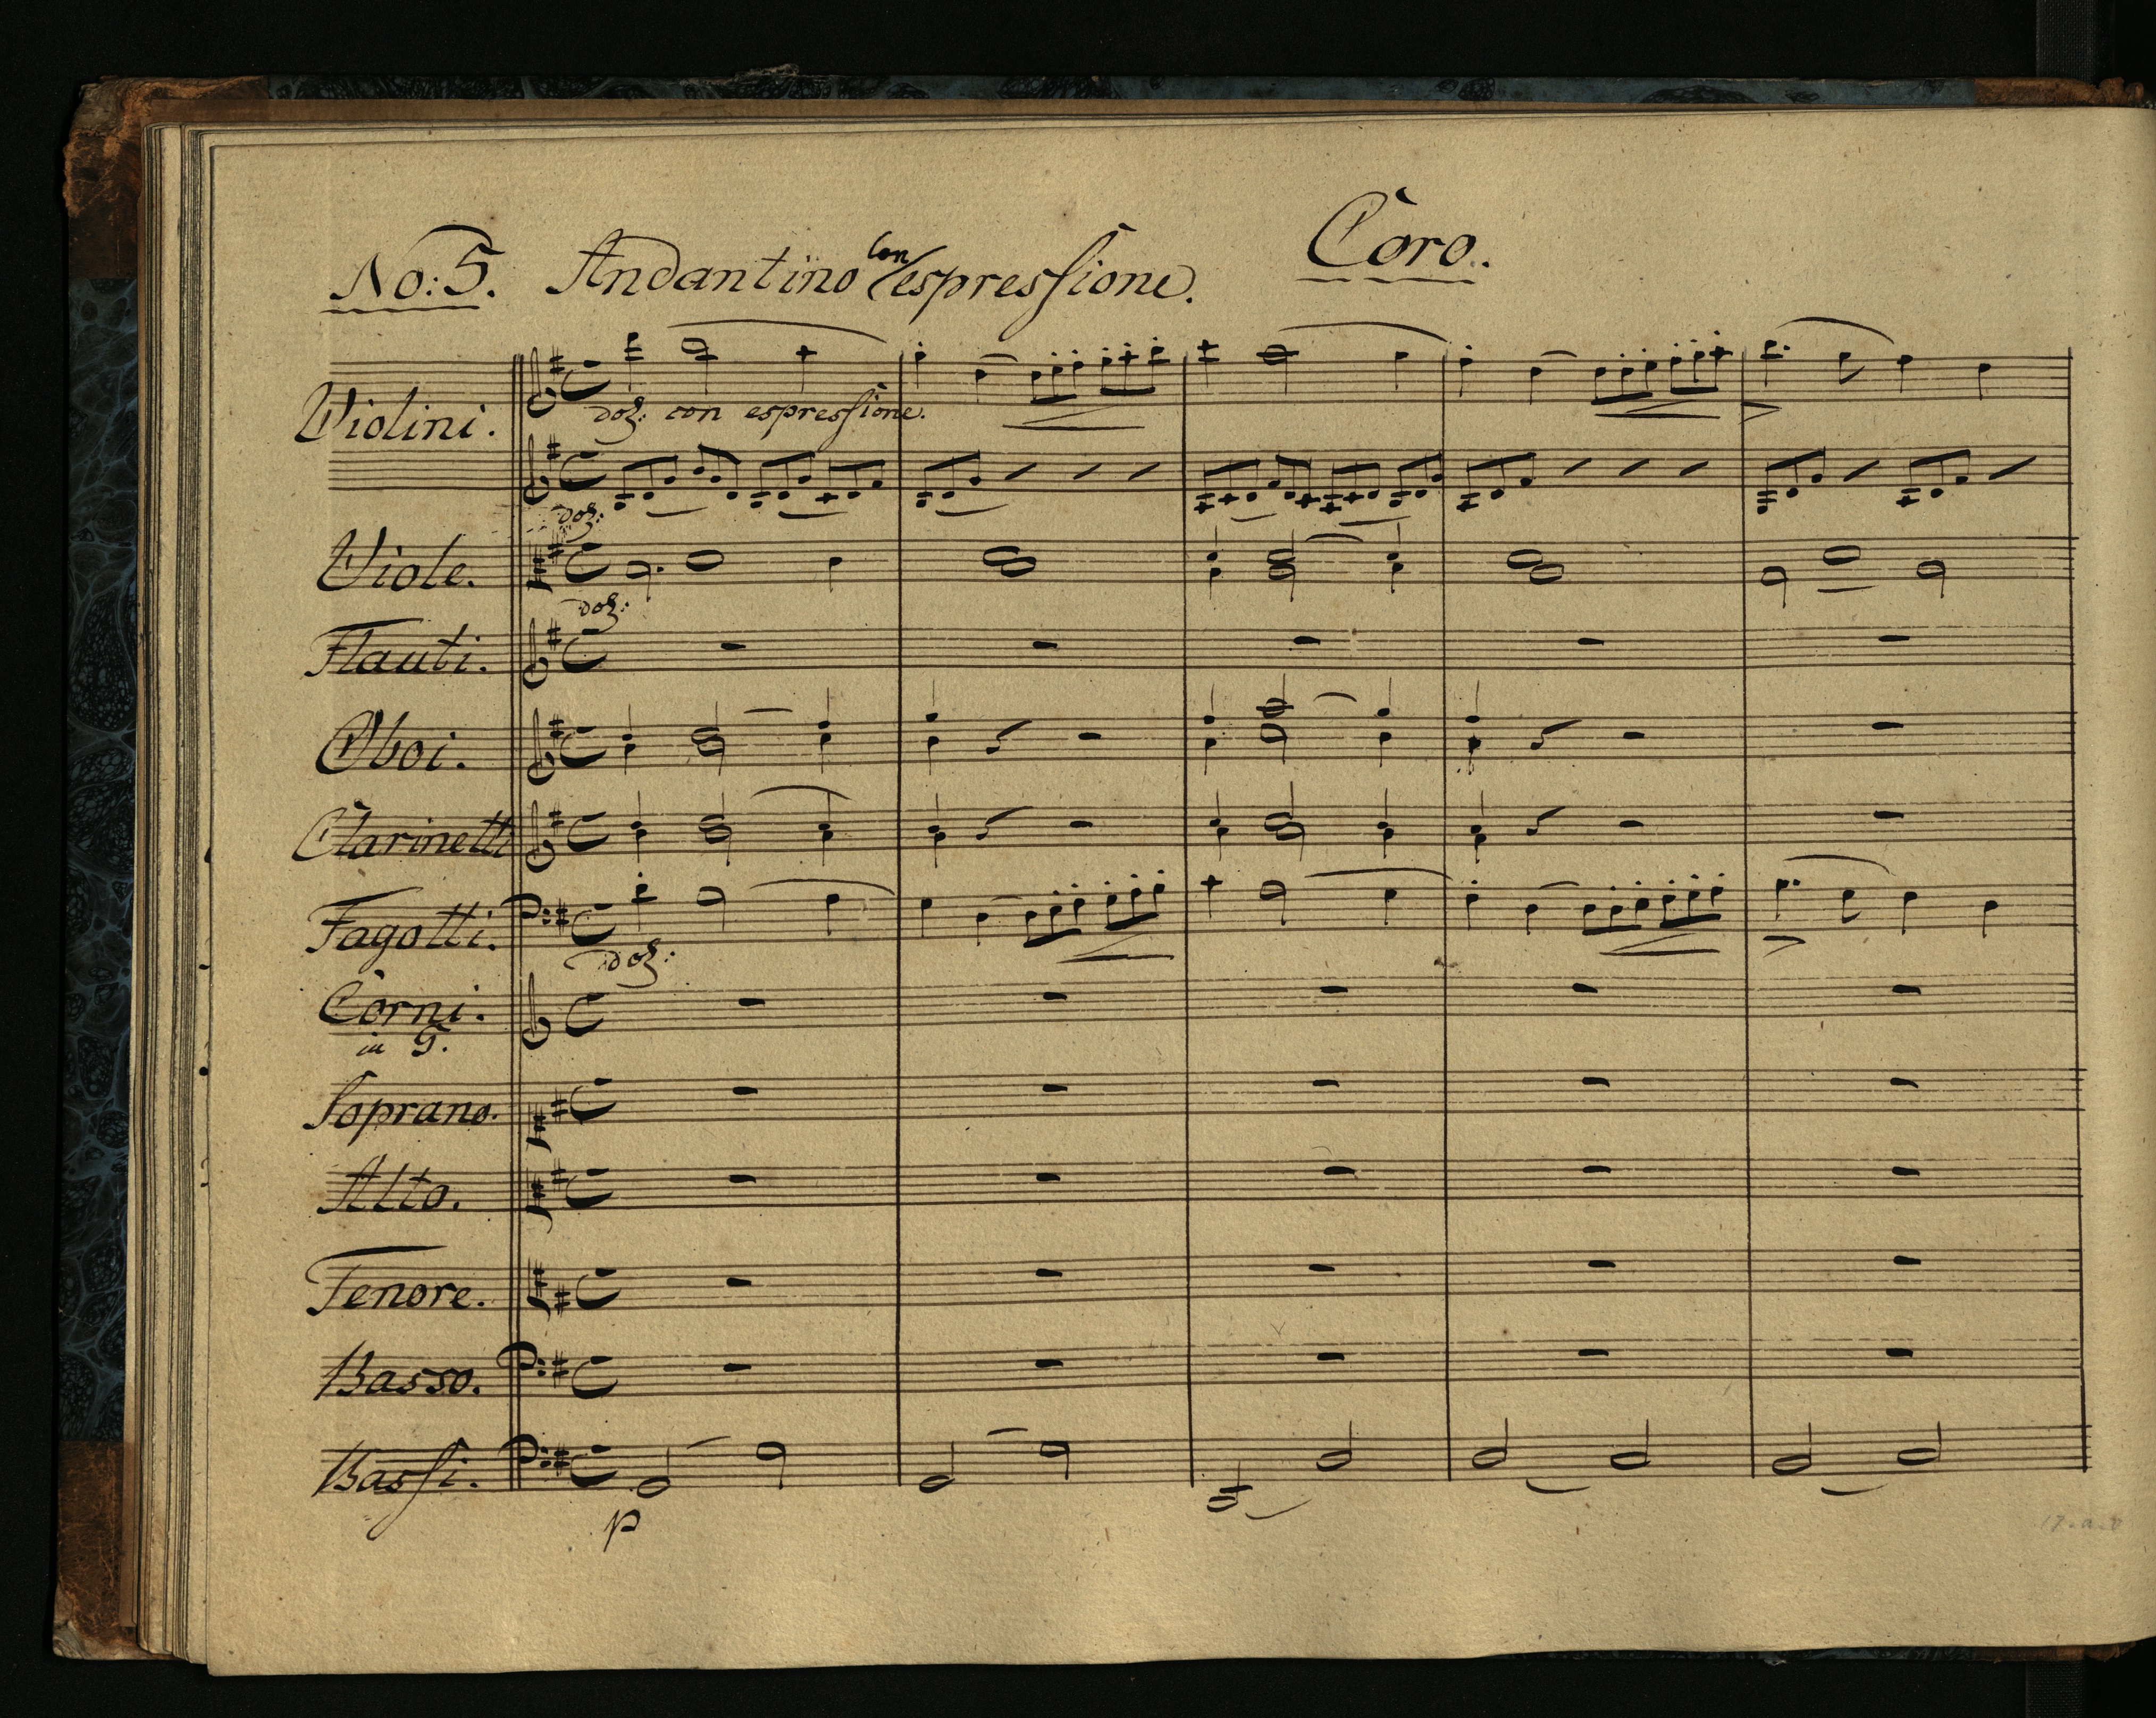 Coro.
No: 5. Andantino con espressione.
Violini.
dolz: con espressione.
dolz:
Viole.
dolz:
Flauti.
Oboi.
Clarinetti
Fagotti.
dolz:
Corni.
in G.
Soprano.
Alto.
Tenore.
Basso.
Bassi.
p